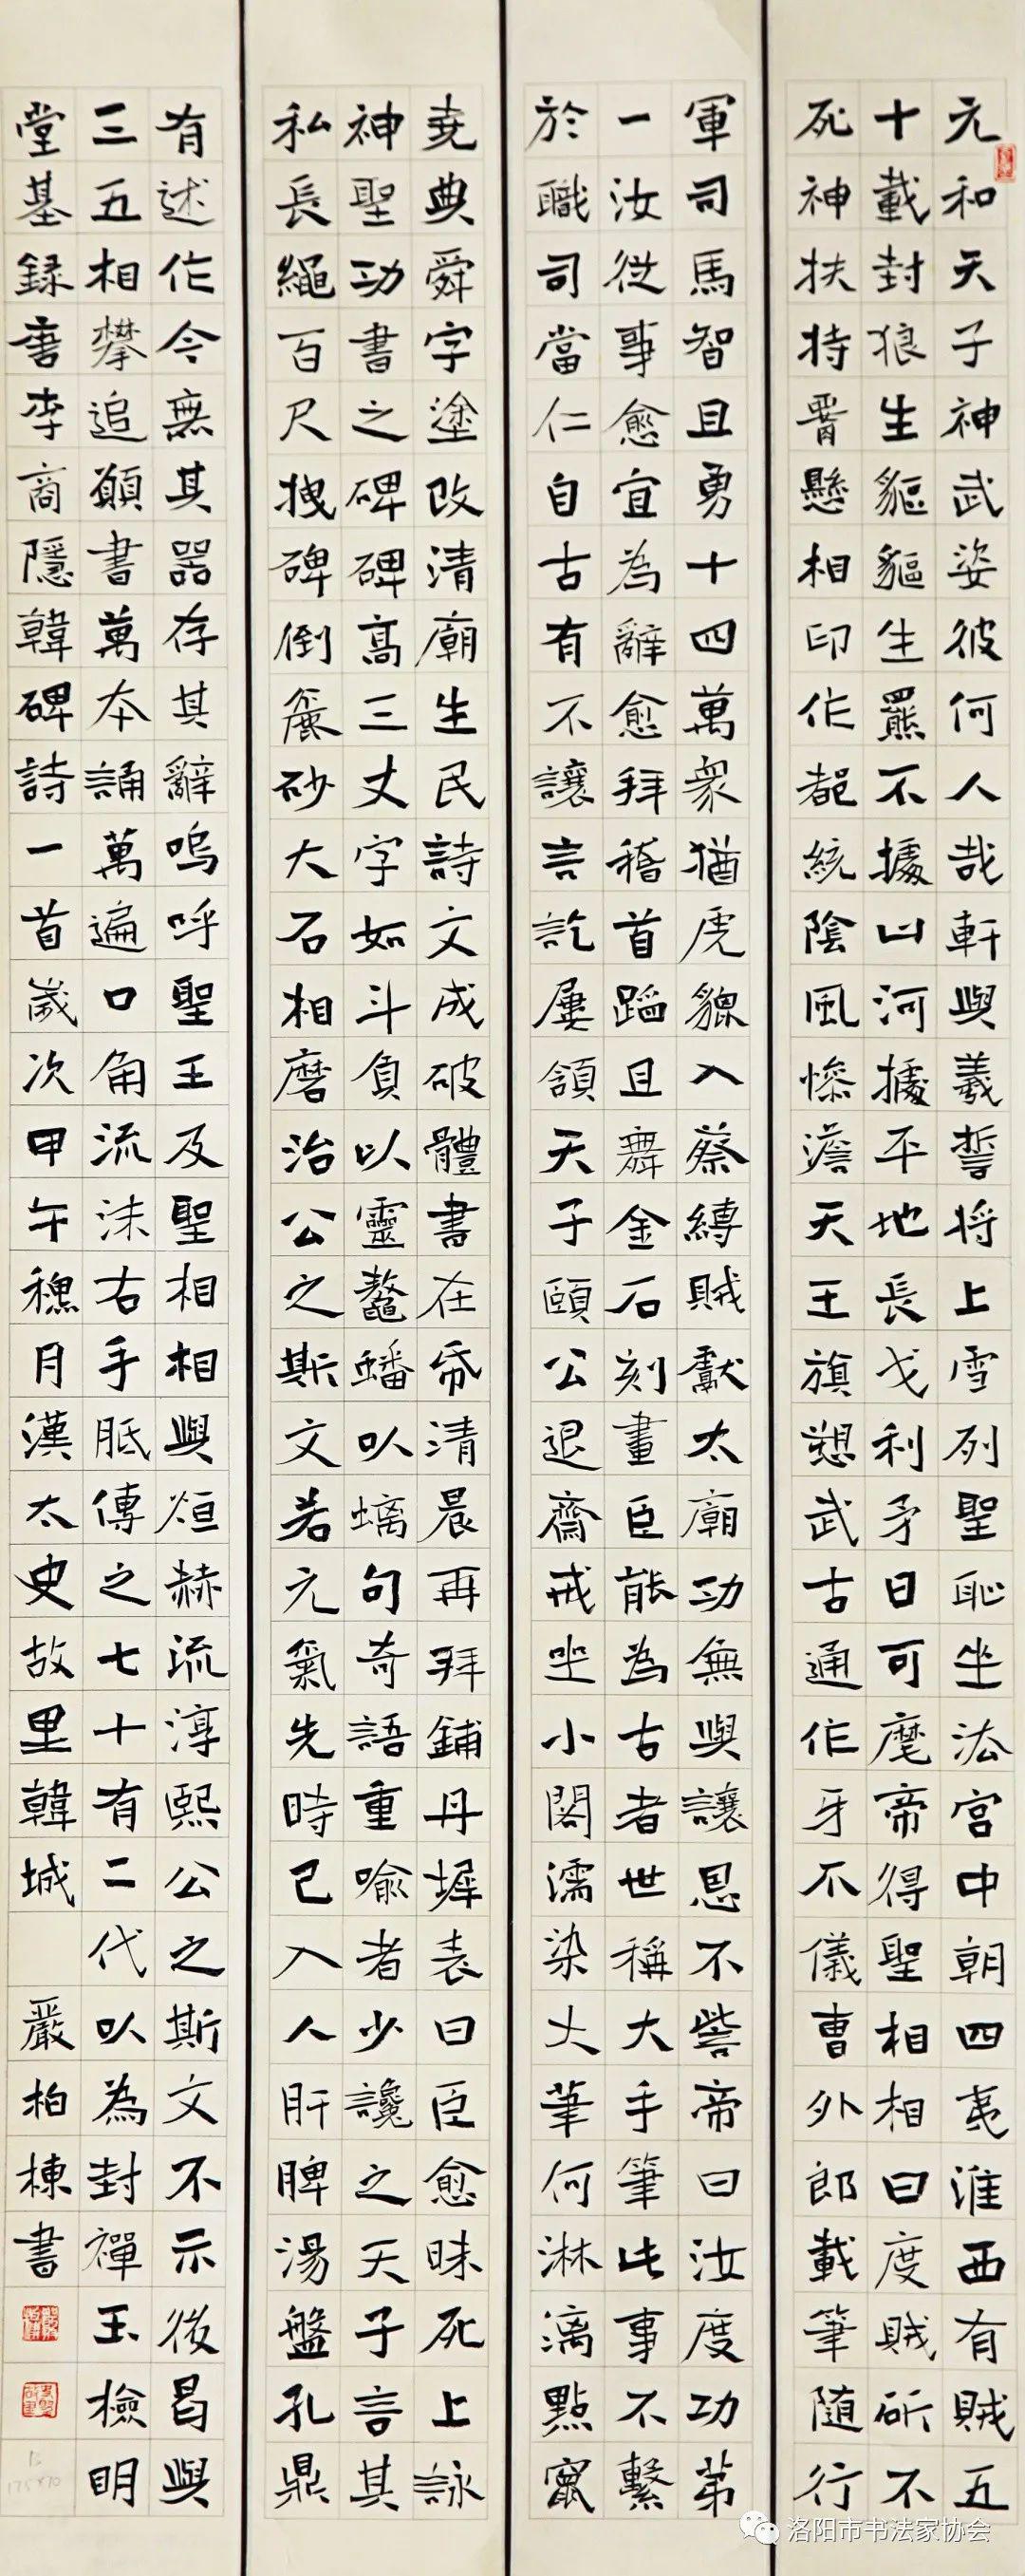 元和天子神武姿彼何人哉軒與羲誓将上雪列聖恥坐法宮中朝四夷淮西有賊五
十載封狼生貙貙生羆不據山河據平地長戈利矛日可麾帝得聖相相曰度賊斫不
死神扶持腰懸相印作都統陰風慘澹天王旗愬武古通作牙不儀曹外郎載筆隨行
軍司馬智且勇十四萬眾猶虎貔入蔡縛賊獻太廟功無與讓恩不訾帝曰汝度功第
一汝從事愈宜為辭愈拜稽首蹈且舞金石刻畫臣能為古者世稱大手筆此事不繫
於職司當仁自古有不讓言訖屢頷天子頤公退齋戒坐小閣濡染大筆何淋漓點竄
堯典舜字塗改清廟生民詩文成破體書在帋清晨再拜鋪丹墀表曰臣愈昧死上詠
神聖功書之碑碑高三丈字如斗負以靈鼇蟠以螭句奇語重喻者少讒之天子言其
私長繩百尺拽碑倒麤砂大石相磨治公之斯文若元氣先時已入人肝脾湯盤孔鼎
有述作今無其器存其辭嗚呼聖王及聖相相與烜赫流淳熙公之斯文不示後曷與
三五相攀追願書萬本誦萬遍口角流沫右手胝傳之七十有二代以為封禪玉檢明
堂基録唐李商隱韓碑詩一首歲次甲午穐月漢太史故里韓城 嚴柏棟書
洛阳市书法家协会